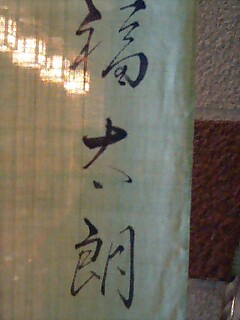 福太朗